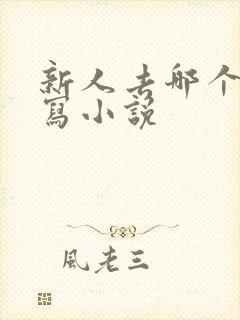 新人去哪个
寫小説
風老三